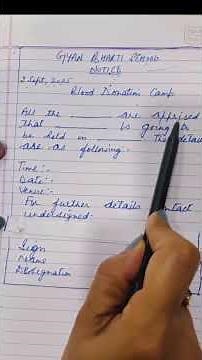 GYAN BHARTI SCHOOL
NOTICE
2 Sept, 2025
Blood Donation Camp
All the ________ are apprised
That ________ is going to
be held in ________ The details
are as following:-
Time :-
Date :-
Venue:-
For further details contact
undersigned.
Sign
Name
Designation